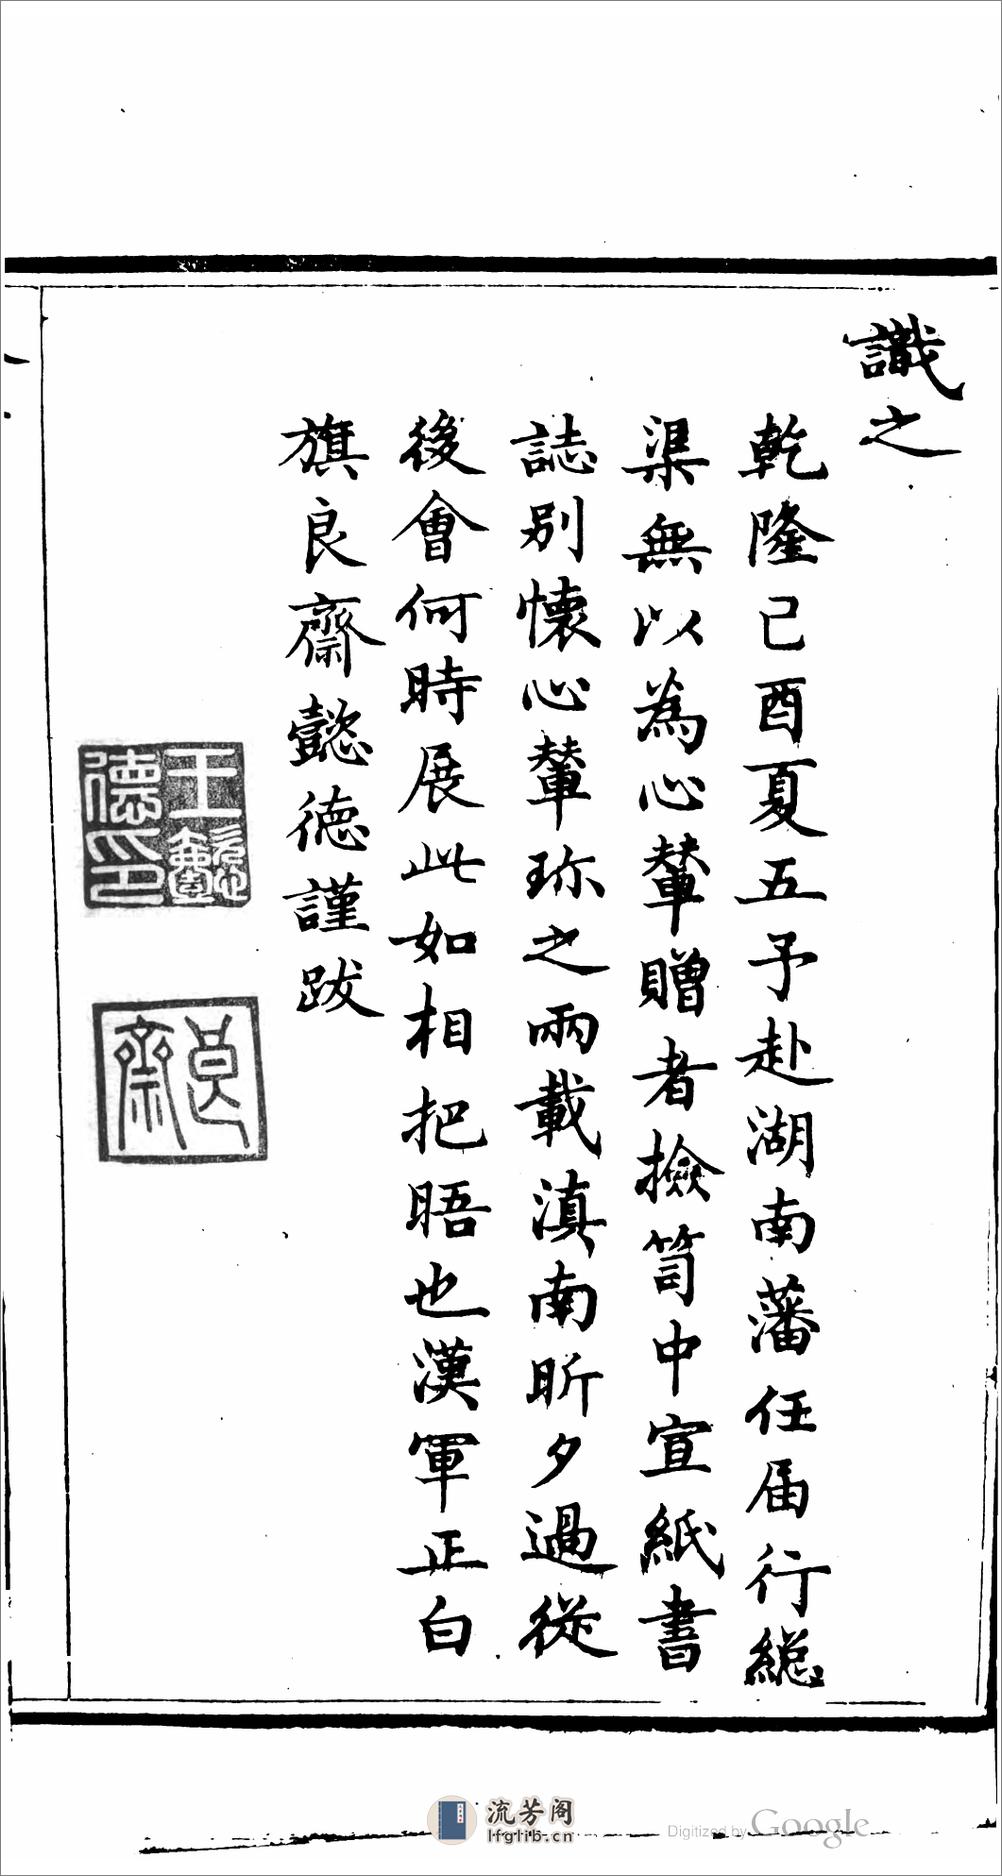 識之
乾隆己酉夏五予赴湖南藩任届行緫
渠無以為心輦贈者撿笥中宣紙書
誌别懐心輦珎之兩載滇南昕夕過從
後會何時展此如相把晤也漢軍正白
旗良齋懿徳謹跋
王懿
德印
良
齋
流芳阁
lfglib.cn
Digitized by Google